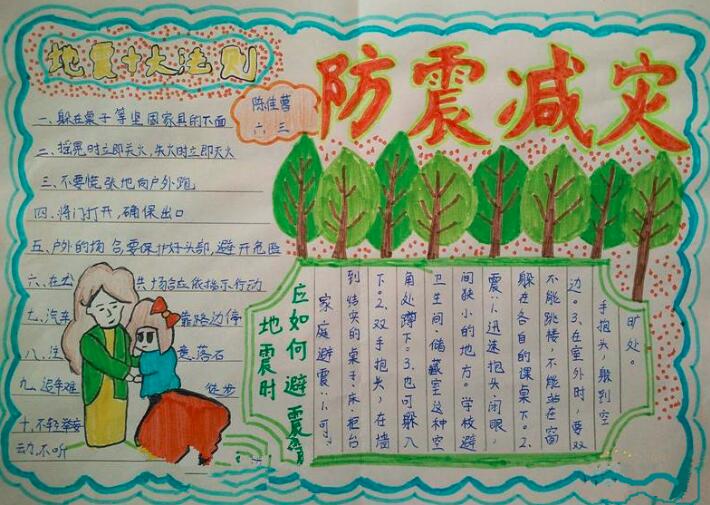 地震十大法则
防震减灾
陈佳蕾
六 三
一、躲在桌子等坚固家具的下面
二、摇晃时立即关火,失火时立即灭火
三、不要慌张地向户外跑
四、将门打开,确保出口
五、户外的场合,要保护好头部,避开危险
六、在公 共场合应依指示行动
七、汽车 靠路边停
八、注 意落石
九、避难 徒步
十、不轻举妄
动,不听
地震时
应如何避震
家庭避震:1.可
到结实的桌子、床、柜台
下2.双手抱头,在墙
角处蹲下。3.也可躲入
卫生间、储藏室这种空
间狭小的地方。学校避
震:1.迅速抱头、闭眼,
躲在各自的课桌下。2.
不能跳楼,不能站在窗
边。3.在室外时,要双
手抱头,躲到空
旷处。